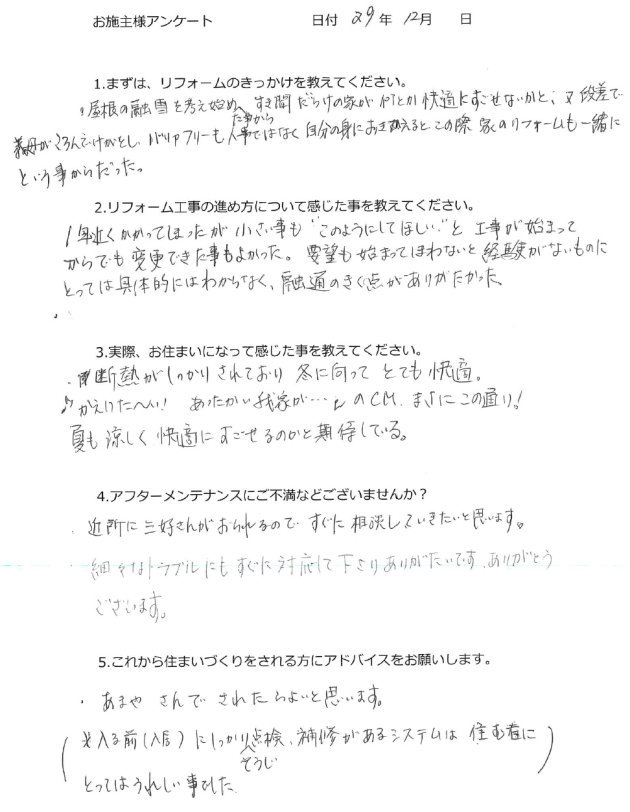 お施主様アンケート 日付 29年 12月 日
1.まずは、リフォームのきっかけを教えてください。
・屋根の融雪を考え始め、すき間だらけの家が何とか快適にすごせないかと、又段差で
た事から
義母がころんでけがをし、バリアフリーも人事ではなく自分の身におきかえるとこの際家のリフォームも一緒に
という事からだった。
2.リフォーム工事の進め方について感じた事を教えてください。
1年近くかかってしまったが小さい事も"このようにしてほしい"と工事が始まって
からでも変更できた事もよかった。要望も始まってしまわないと経験がないものに
とっては具体的にはわからなく、融通のきく点がありがたかった。
3.実際、お住まいになって感じた事を教えてください。
・断熱がしっかりされており冬に向ってとても快適。
♪かえりたーい! あったかい我家が…♪のCM、まさにこの通り!
夏も涼しく快適にすごせるのかと期待している。
4.アフターメンテナンスにご不満などございませんか?
・近所に三好さんがおられるのですぐに相談していきたいと思います。
・細々なトラブルにもすぐに対応して下さりありがたいです。ありがとう
ございます。
5.これから住まいづくりをされる方にアドバイスをお願いします。
・あまやさんでされたらよいと思います。
(※入る前(入居)にしっかり点検、補修があるシステムは住む者に
そうじ
とってはうれしい事でした。)